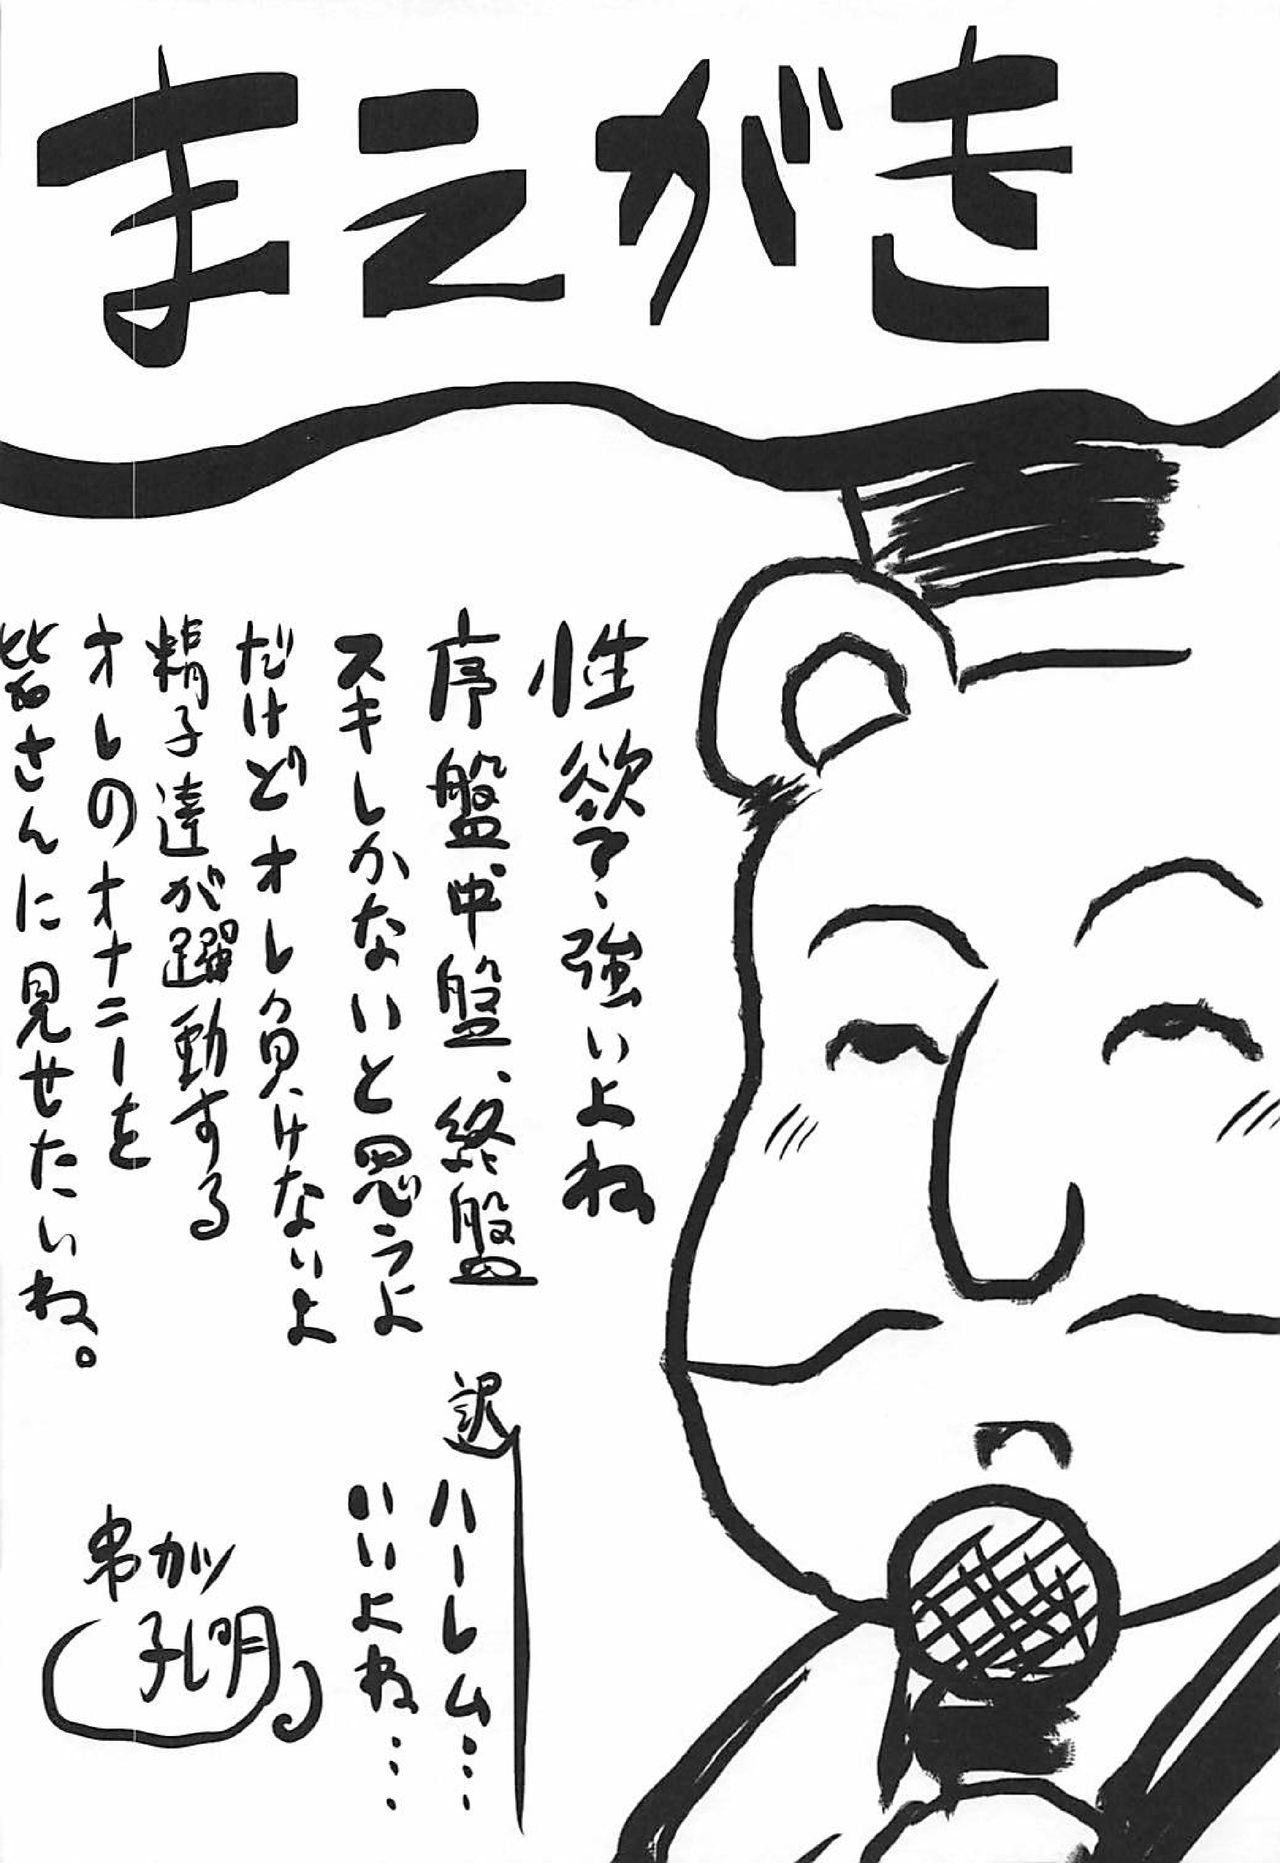 まえがき
性欲?、強いよね
序盤、中盤、終盤
スキしかないと思うよ
だけどオレ負けないよ
精子達が躍動する
オレのオナニーを
皆さんに見せたいね。
訳
ハーレム…
いいよね…
串カツ
孔明